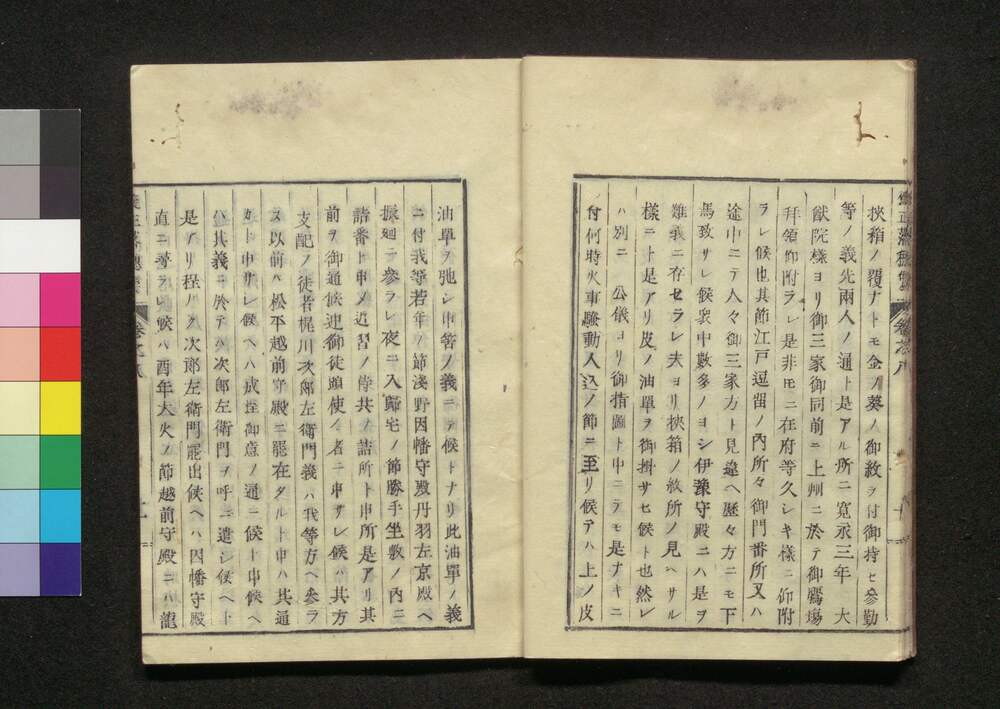 挾箱ノ覆ナトモ金ノ葵ノ御紋ヲ付御持セ參勤
等ノ義先兩人ノ通ト是アル所ニ寛永三年 大
猷院樣ヨリ御三家御同前ニ上州ニ於テ御鷹塲
拜領仰附ラレ是非モニ在府等久シキ樣ニ仰附
ラレ候也其節江戸逗留ノ內所々御門番所又ハ
途中ニテ人々御三家方ト見違ヘ歷々方ニモ下
馬致サレ候衆中數多ノヨシ伊豫守殿ニハ是ヲ
難義ニ存セラレ夫ヨリ挾箱ノ紋所ノ見ヘサル
樣ニト是アリ皮ノ油單ヲ御掛サセ候ト也然レ
ハ別ニ 公儀ヨリ御指圖ト申ニテモ是ナキニ
付何時火事騷動人込ノ節ニ至リ候テハ上ノ皮
油單ヲ弛シ申等ノ義ニテ候トナリ此油單ノ義
ニ付我等若年ノ節淺野因幡守殿丹羽左京殿ヘ
振廻ニテ參ラレ夜ニ入歸宅ノ節勝手坐敷ノ內ニ
諸番ト申メ近習ノ侍共ノ詰所ト申所是アリ其
前ヲ御通候迚御徒頭使ノ者ニ申サレ候ハ其方
支配ノ徒者梶川次郎左衛門義ハ我等方ヘ參ラ
ス以前ハ松平越前守殿ニ罷在タルト申ハ其通
カト申サレ候ヘハ成程御意ノ通ニ候ト申候ヘ
ハ其義ニ於テハ次郎左衛門ヲ呼ニ遣シ候ヘト
是アリ程ナク次郎左衛門罷出候ヘハ因幡守殿
直ニ尋ラレ候ハ酉年大火ノ節越前守殿ニハ龍
卷之八